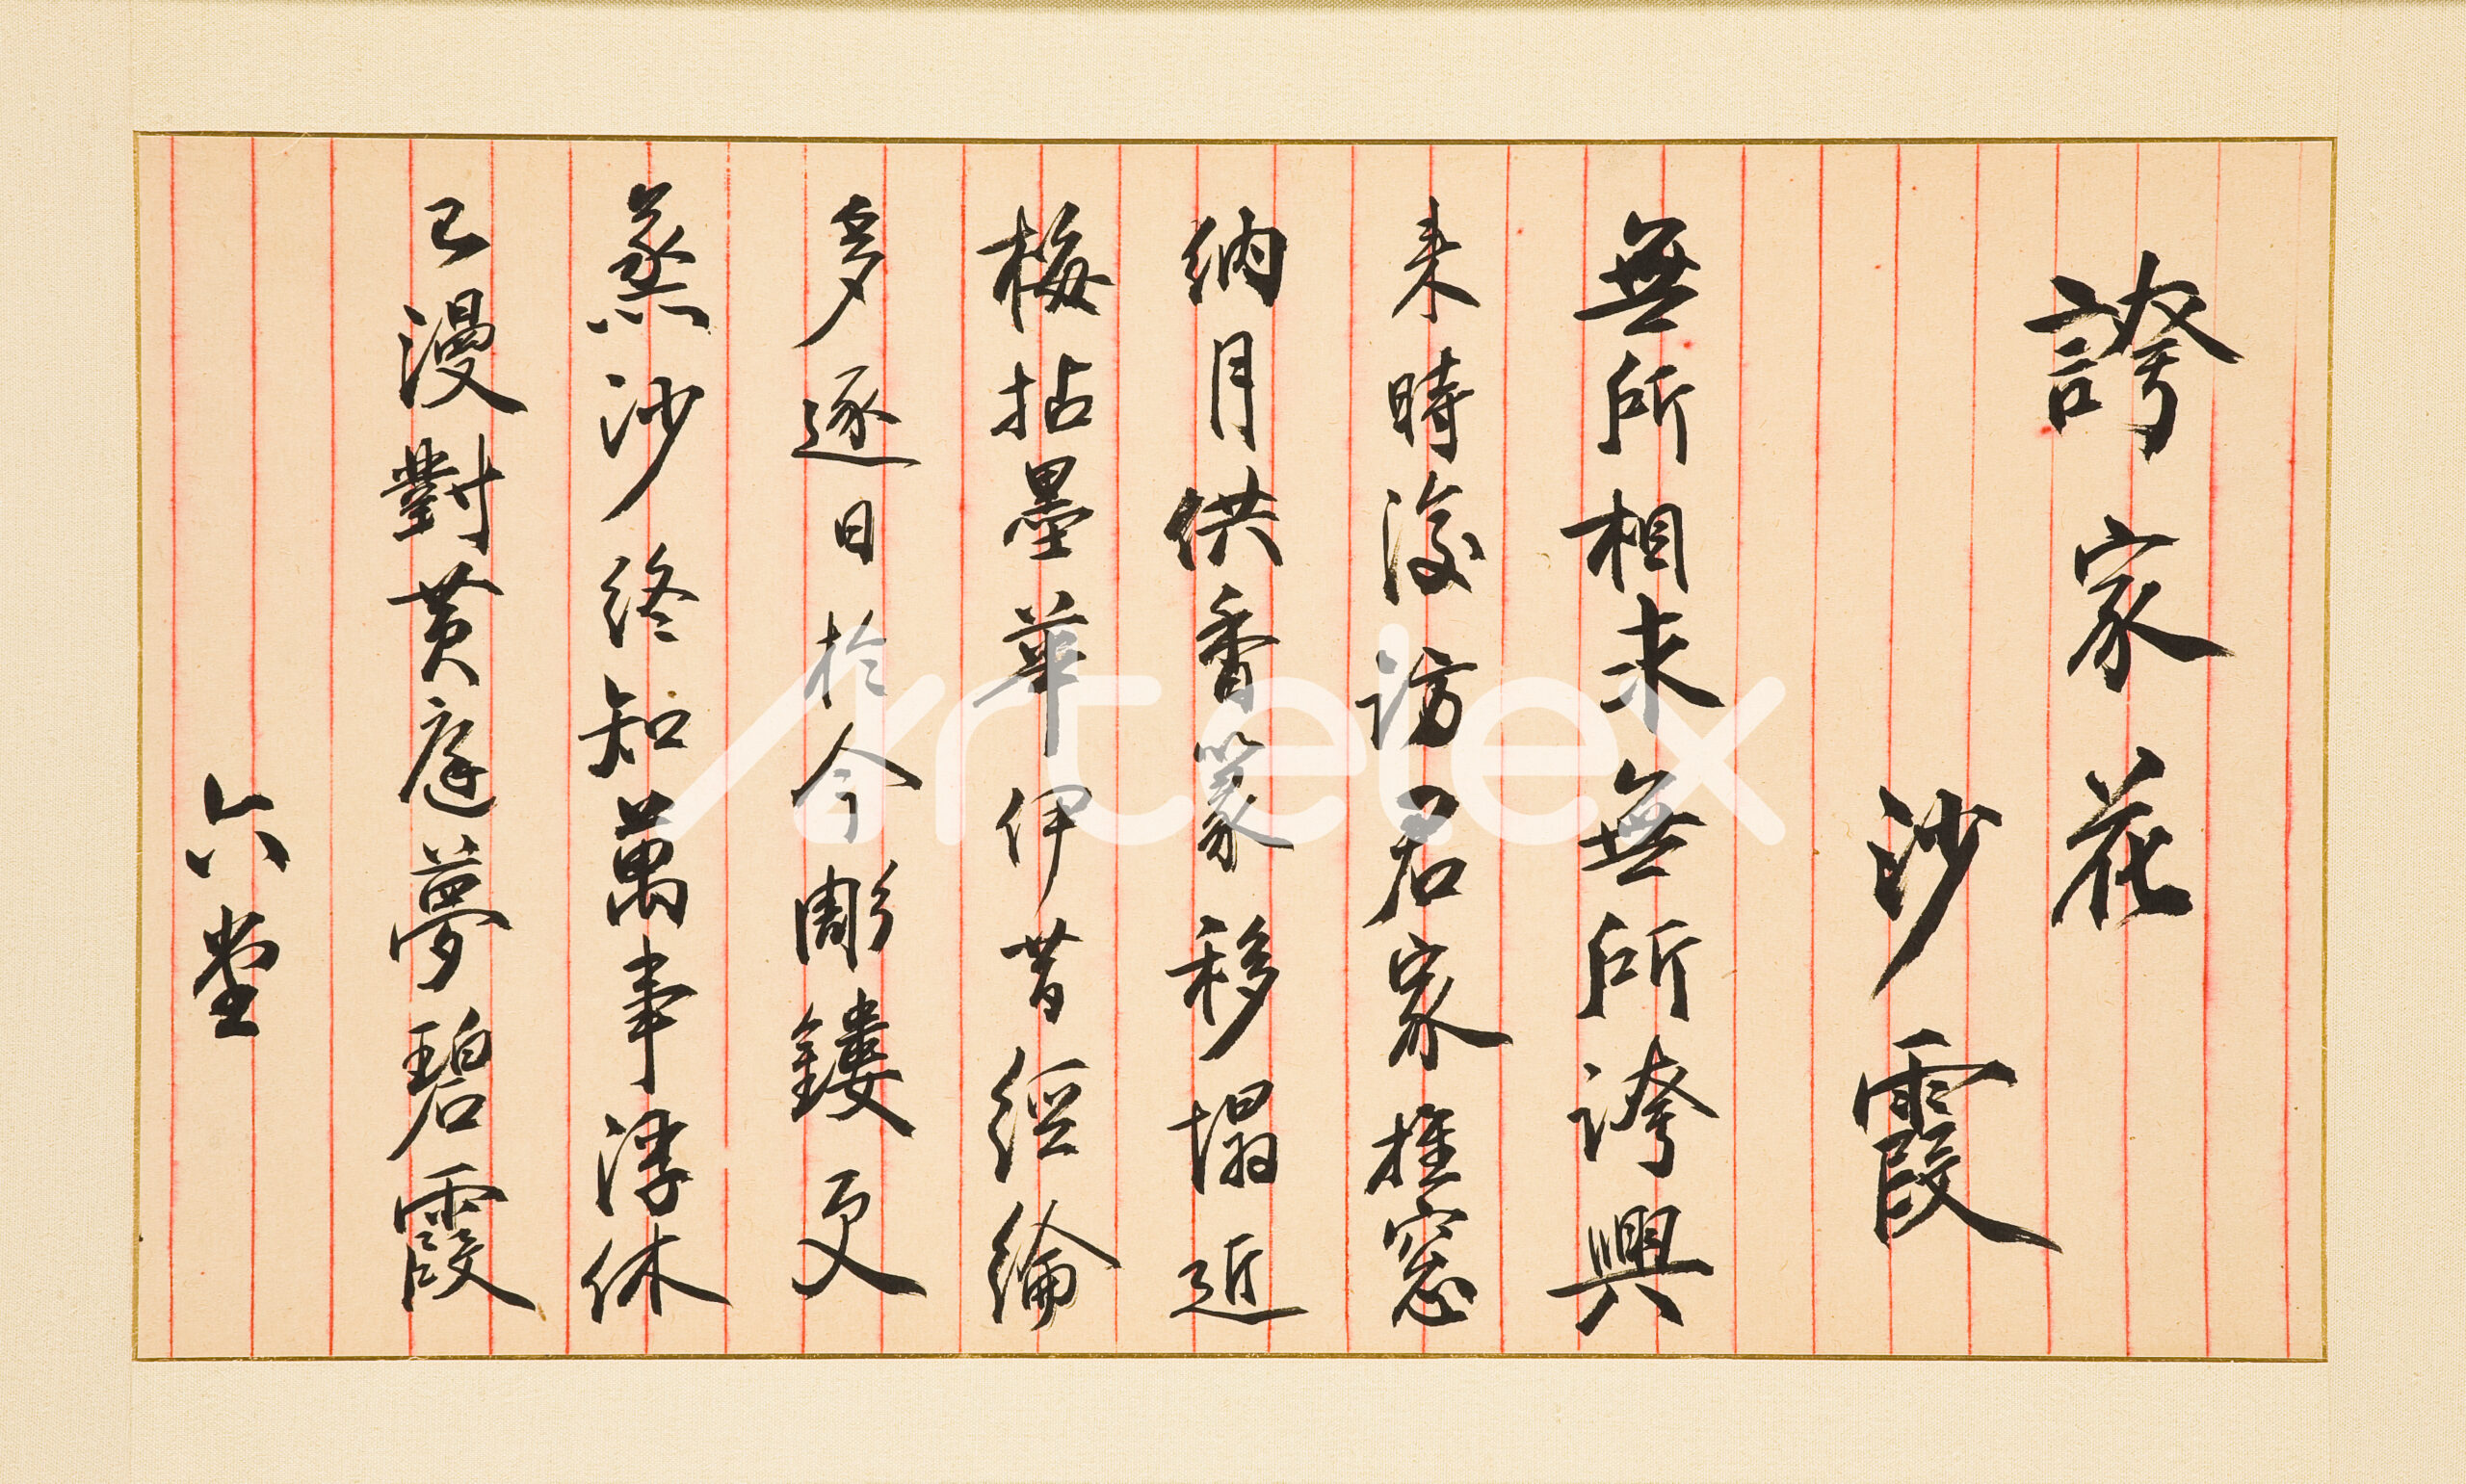 誇家花
沙霞
無所相求無所誇興
来時復訪君家推窓
納月供香篆移榻近
梅拈墨華伊昔經綸
多逐日於今彫鏤更
蒸沙終知萬事浮休
已漫對黄庭夢碧霞
六堂
Artelex